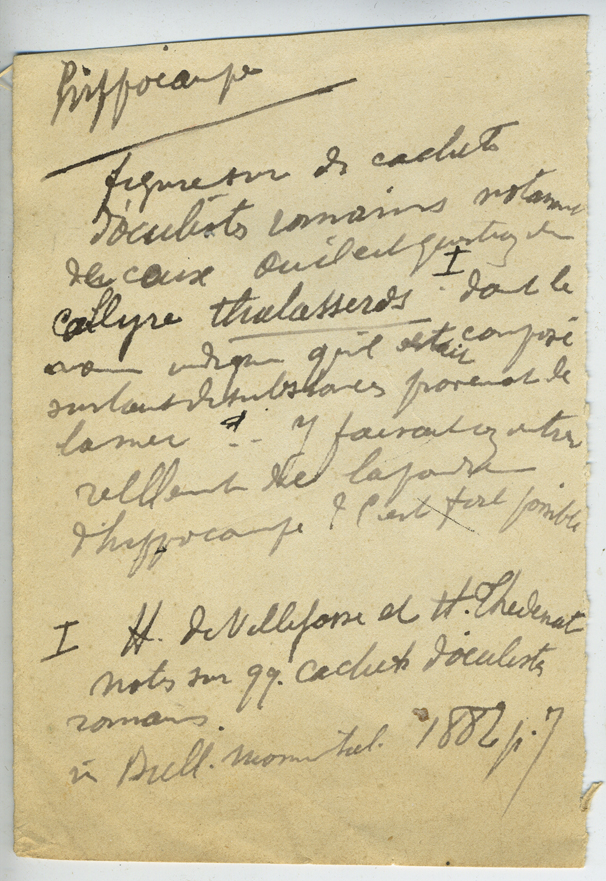 hippocampe
figure sur des cachets
d'oculistes romains notamment
des ceux où il est question du
collyre thalasseros I dont le
nom indique qu'il était composé
surtout de substances provenant de
la mer Y faisait on entrer
réellement de la poudre
d'hippocampe ? C'est fort possible
I H. de Villefosse et H. Thedenat
notes sur qq. cachets d'oculistes
romains.
in Bull. monumental. 1882 p. 7